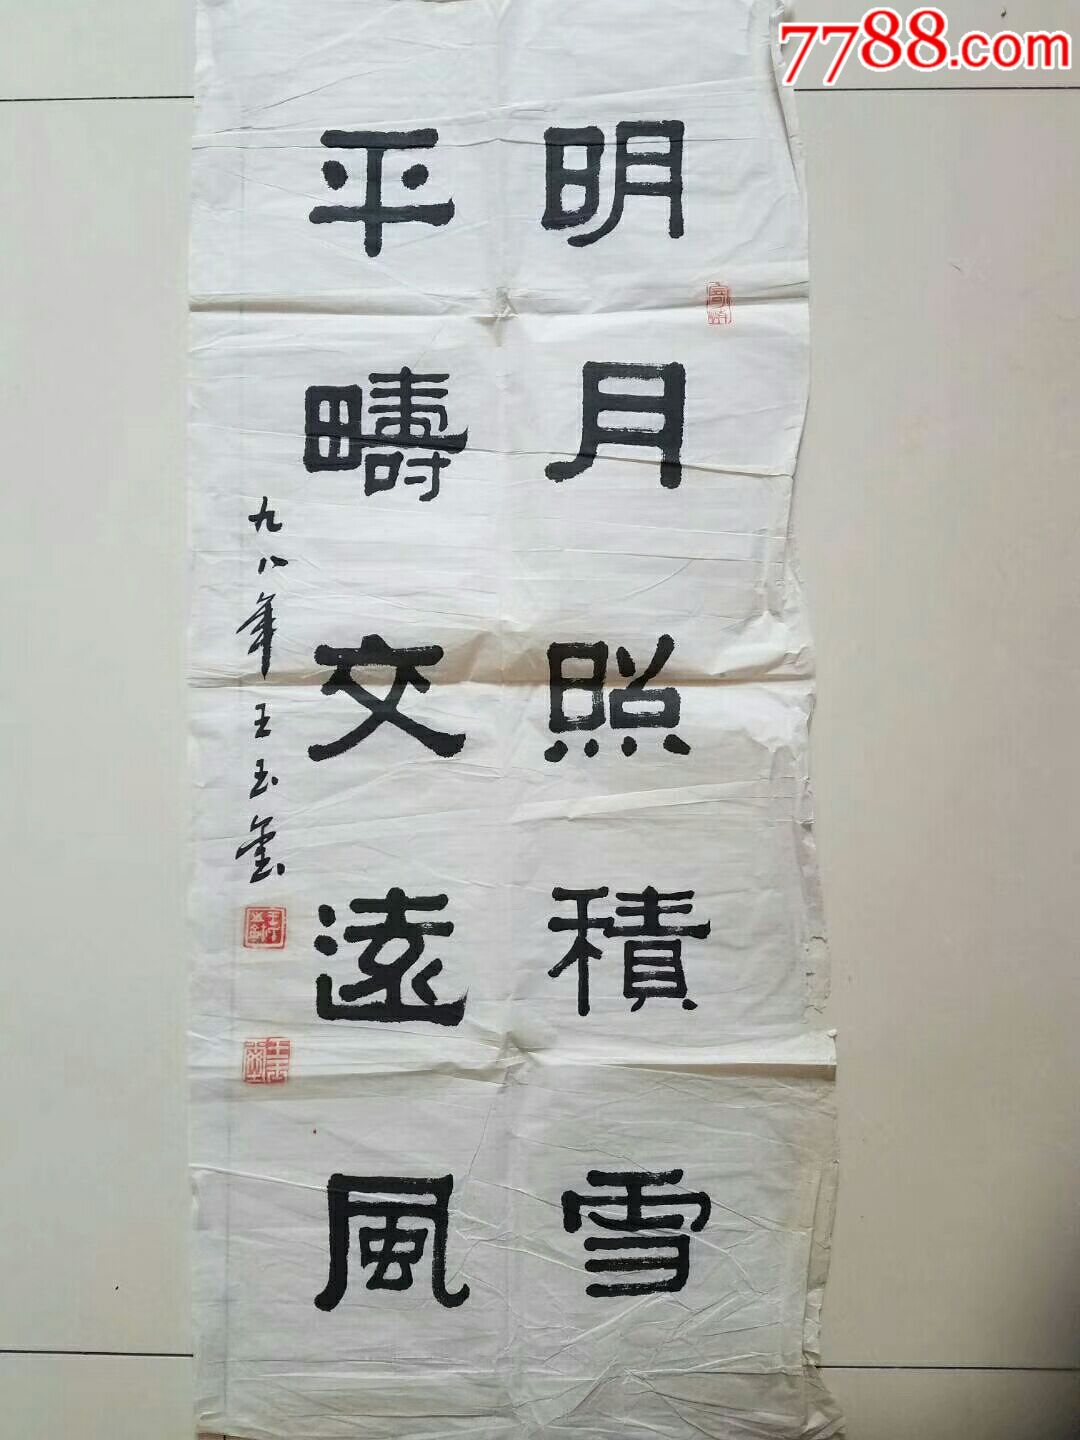 7788.com
明月照積雪
平疇交遠風
九八年王玉璽